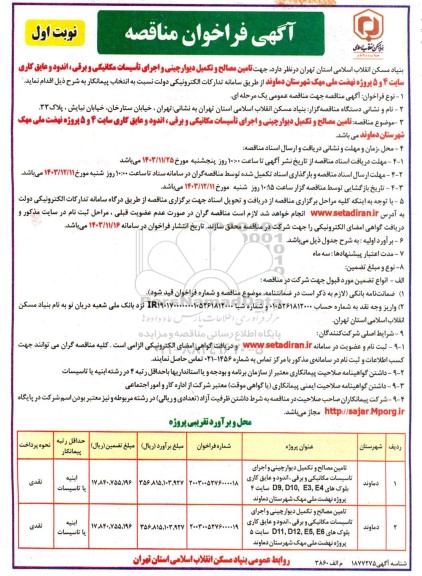 آگهی فراخوان مناقصه
نوبت اول
بنیاد مسکن انقلاب اسلامی استان تهران درنظر دارد، جهت تامین مصالح و تکمیل دیوارچینی و اجرای تأسیسات مکانیکی و برقی، اندود و عایق کاری
سایت ۴ و ۵ پروژه نهضت ملی مهک شهرستان دماوند از طریق سامانه تدارکات الکترونیکی دولت نسبت به انتخاب پیمانکار به شرح ذیل اقدام نماید.
۱- نوع فراخوان: آگهی مناقصه عمومی یک مرحله ای.
۲- نام و نشانی دستگاه مناقصه‌گزار: بنیاد مسکن انقلاب اسلامی استان تهران به نشانی: تهران، خیابان ستارخان، خیابان نیایش، پلاک ۳۳.
۳- موضوع مناقصه: تامین مصالح و تکمیل دیوارچینی و اجرای تأسیسات مکانیکی و برقی، اندود و عایق کاری سایت ۴ و ۵ پروژه نهضت ملی مهک
شهرستان دماوند می باشد.
۴- محل زمان و مهلت و نشانی دریافت و ارسال اسناد مناقصه:
۴-۱- مهلت دریافت اسناد مناقصه از تاریخ نشر آگهی تا ساعت ۱۰:۰۰ روز پنجشنبه مورخ ۱۴۰۳/۱۱/۲۵ می‌باشد
۴-۲- مهلت ارسال اسناد مناقصه و بارگذاری اسناد تکمیل شده توسط مناقصه‌گران در سامانه ستاد تا ساعت ۱۰:۰۰ روز شنبه مورخ ۱۴۰۳/۱۲/۱۱ می‌باشد.
۴-۳- تاریخ بازگشایی توسط مناقصه گزار ساعت ۱۰:۱۵ روز شنبه مورخ ۱۴۰۳/۱۲/۱۱ می‌باشد.
۵- با توجه به اینکه کلیه مراحل برگزاری مناقصه از دریافت و تحویل اسناد جهت برگزاری مناقصه از طریق درگاه سامانه تدارکات الکترونیکی دولت
به آدرس www.setadiran.ir انجام خواهد شد لازم است مناقصه گران در صورت عدم عضویت قبلی، مراحل ثبت نام در سایت مذکور و
دریافت گواهی امضای الکترونیکی را جهت شرکت در مناقصه محقق سازند. تاریخ انتشار فراخوان در سامانه ۱۴۰۳/۱۱/۱۶ می‌باشد.
۶- برآورد اولیه: به شرح جدول ذیل می‌باشد.
۷- مدت اعتبار پیشنهادها: سه ماه
۸- نوع و مبلغ تضمین:
الف - انواع تضمین مورد قبول جهت شرکت در مناقصه:
۱) ضمانت‌نامه بانکی (لازم به ذکر است در ضمانتنامه، موضوع مناقصه و شماره فراخوان قید شود).
نزد بانک ملی شعبه دریان نو به نام بنیاد مسکن
انقلاب اسلامی استان تهران.
۹- شرایط اصلی شرکت‌کنندگان:
۹-۱- ثبت نام و عضویت در سامانه www.setadiran.ir و دریافت گواهی امضای الکترونیکی الزامی است. کلیه مناقصه گران می توانند جهت
کسب اطلاعات و ثبت نام در سامانه‌ی مذکور با مرکز تماس به شماره ۱۴۵۶-۰۲۱ تماس حاصل نمایند.
۹-۲- داشتن گواهینامه صلاحیت پیمانکاری معتبر از سازمان برنامه و بودجه و یا استانداریها با حداقل رتبه ۴ در رشته ابنیه یا تاسیسات
۹-۳- داشتن گواهینامه صلاحیت ایمنی پیمانکاری (یا گواهی موقت) معتبر شرکت از اداره کار و امور اجتماعی
۹-۴- شرکت پیمانکاران صاحب صلاحیت در مناقصه به شرط داشتن ظرفیت آزاد (تعدادی و ریالی) در رشته مربوطه و نیز معتبر بودن اسم شرکت در پایگاه
http://sajar.Mporg.ir مجاز می‌باشد.
محل و برآورد تقریبی پروژه
ردیف | شهرستان | عنوان پروژه | شماره فراخوان | مبلغ برآورد (ریال) | مبلغ تضمین (ریال) | حداقل رتبه پیمانکار | نحوه پرداخت
۱ | دماوند | تامین مصالح و تکمیل دیوارچینی و اجرای تاسیسات مکانیکی و برقی، اندود و عایق کاری بلوک های D9, D10, E3, E4 سایت ۴ پروژه نهضت ملی مهک شهرستان دماوند | ۲۰۰۳۰۰۵۲۷۶۰۰۰۰۱۸ | ۳۵۶,۸۱۵,۱۰۳,۹۲۷ | ۱۷,۸۴۰,۷۵۵,۱۹۶ | ابنیه یا تاسیسات | نقدی
۲ | دماوند | تامین مصالح و تکمیل دیوارچینی و اجرای تاسیسات مکانیکی و برقی، اندود و عایق کاری بلوک های D11, D12, E5, E6 سایت ۵ پروژه نهضت ملی مهک شهرستان دماوند | ۲۰۰۳۰۰۵۲۷۶۰۰۰۰۱۹ | ۳۵۶,۸۱۵,۱۰۳,۹۲۷ | ۱۷,۸۴۰,۷۵۵,۱۹۶ | ابنیه یا تاسیسات | نقدی
شناسه آگهی ۱۸۷۷۲۷۵ م الف ۳۸۶۰
روابط عمومی بنیاد مسکن انقلاب اسلامی استان تهران